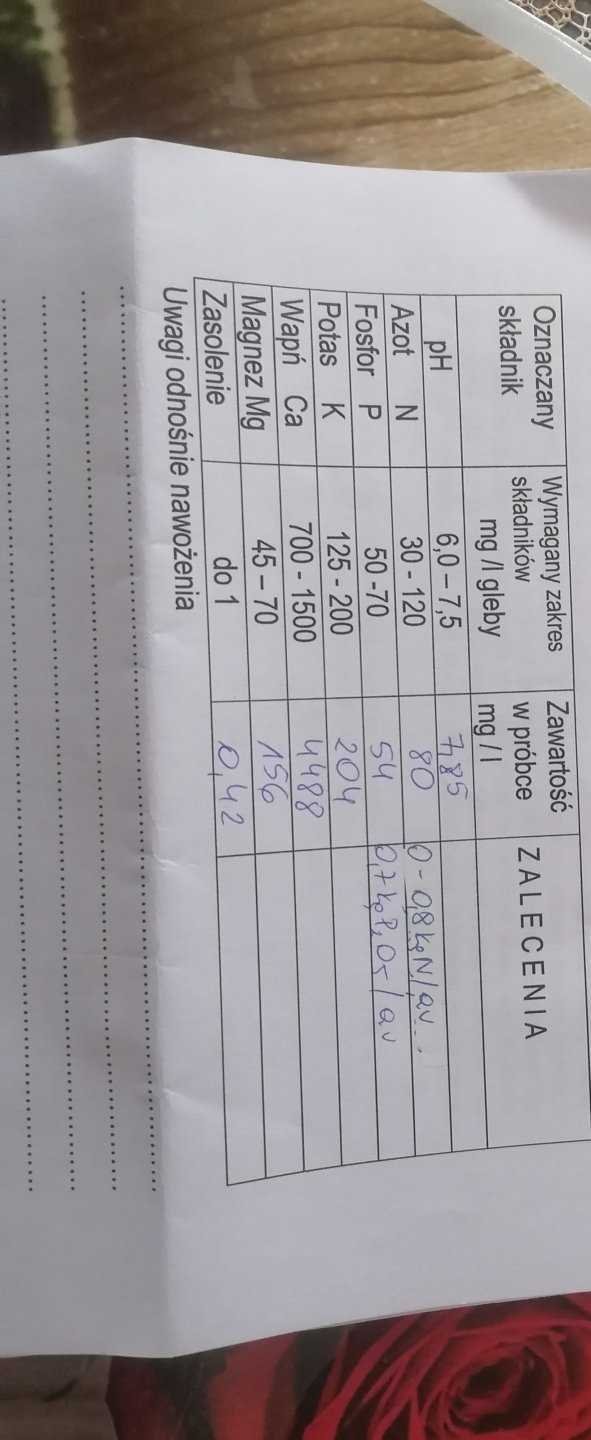 Oznaczany składnik | Wymagany zakres składników mg /l gleby | Zawartość w próbce mg / l | ZALECENIA
pH | 6,0 – 7,5 | 7,85 |
Azot N | 30 - 120 | 80 | 0 - 0,8 kg N/ar.
Fosfor P | 50 -70 | 54 | 0,7 kg P₂O₅/ar
Potas K | 125 - 200 | 204 |
Wapń Ca | 700 - 1500 | 4488 |
Magnez Mg | 45 – 70 | 156 |
Zasolenie | do 1 | 0,42 |
Uwagi odnośnie nawożenia